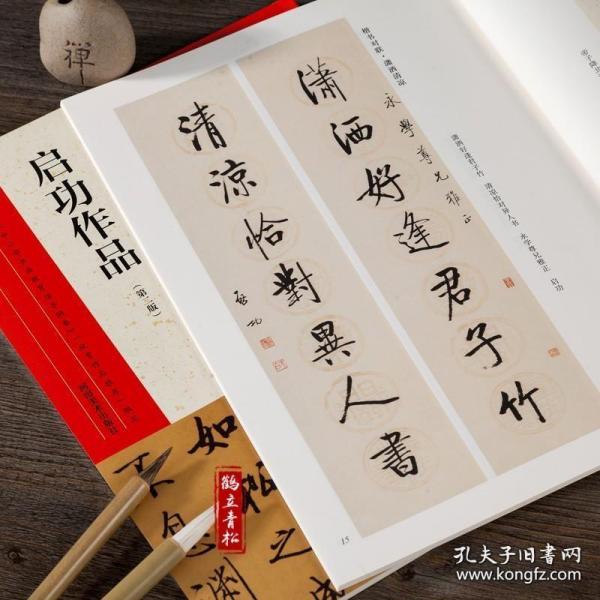 禅
启功作品
(第二版)
河南美术出版社
楷书对联·潇洒清凉
潇洒好逢君子竹 清凉恰对异人书 永学尊兄雅正 启功
瀟洒好逢君子竹
永學尊兄雅正
清涼恰對異人書
啟功
15
鹤立青松
孔夫子旧书网
www.kongfz.com